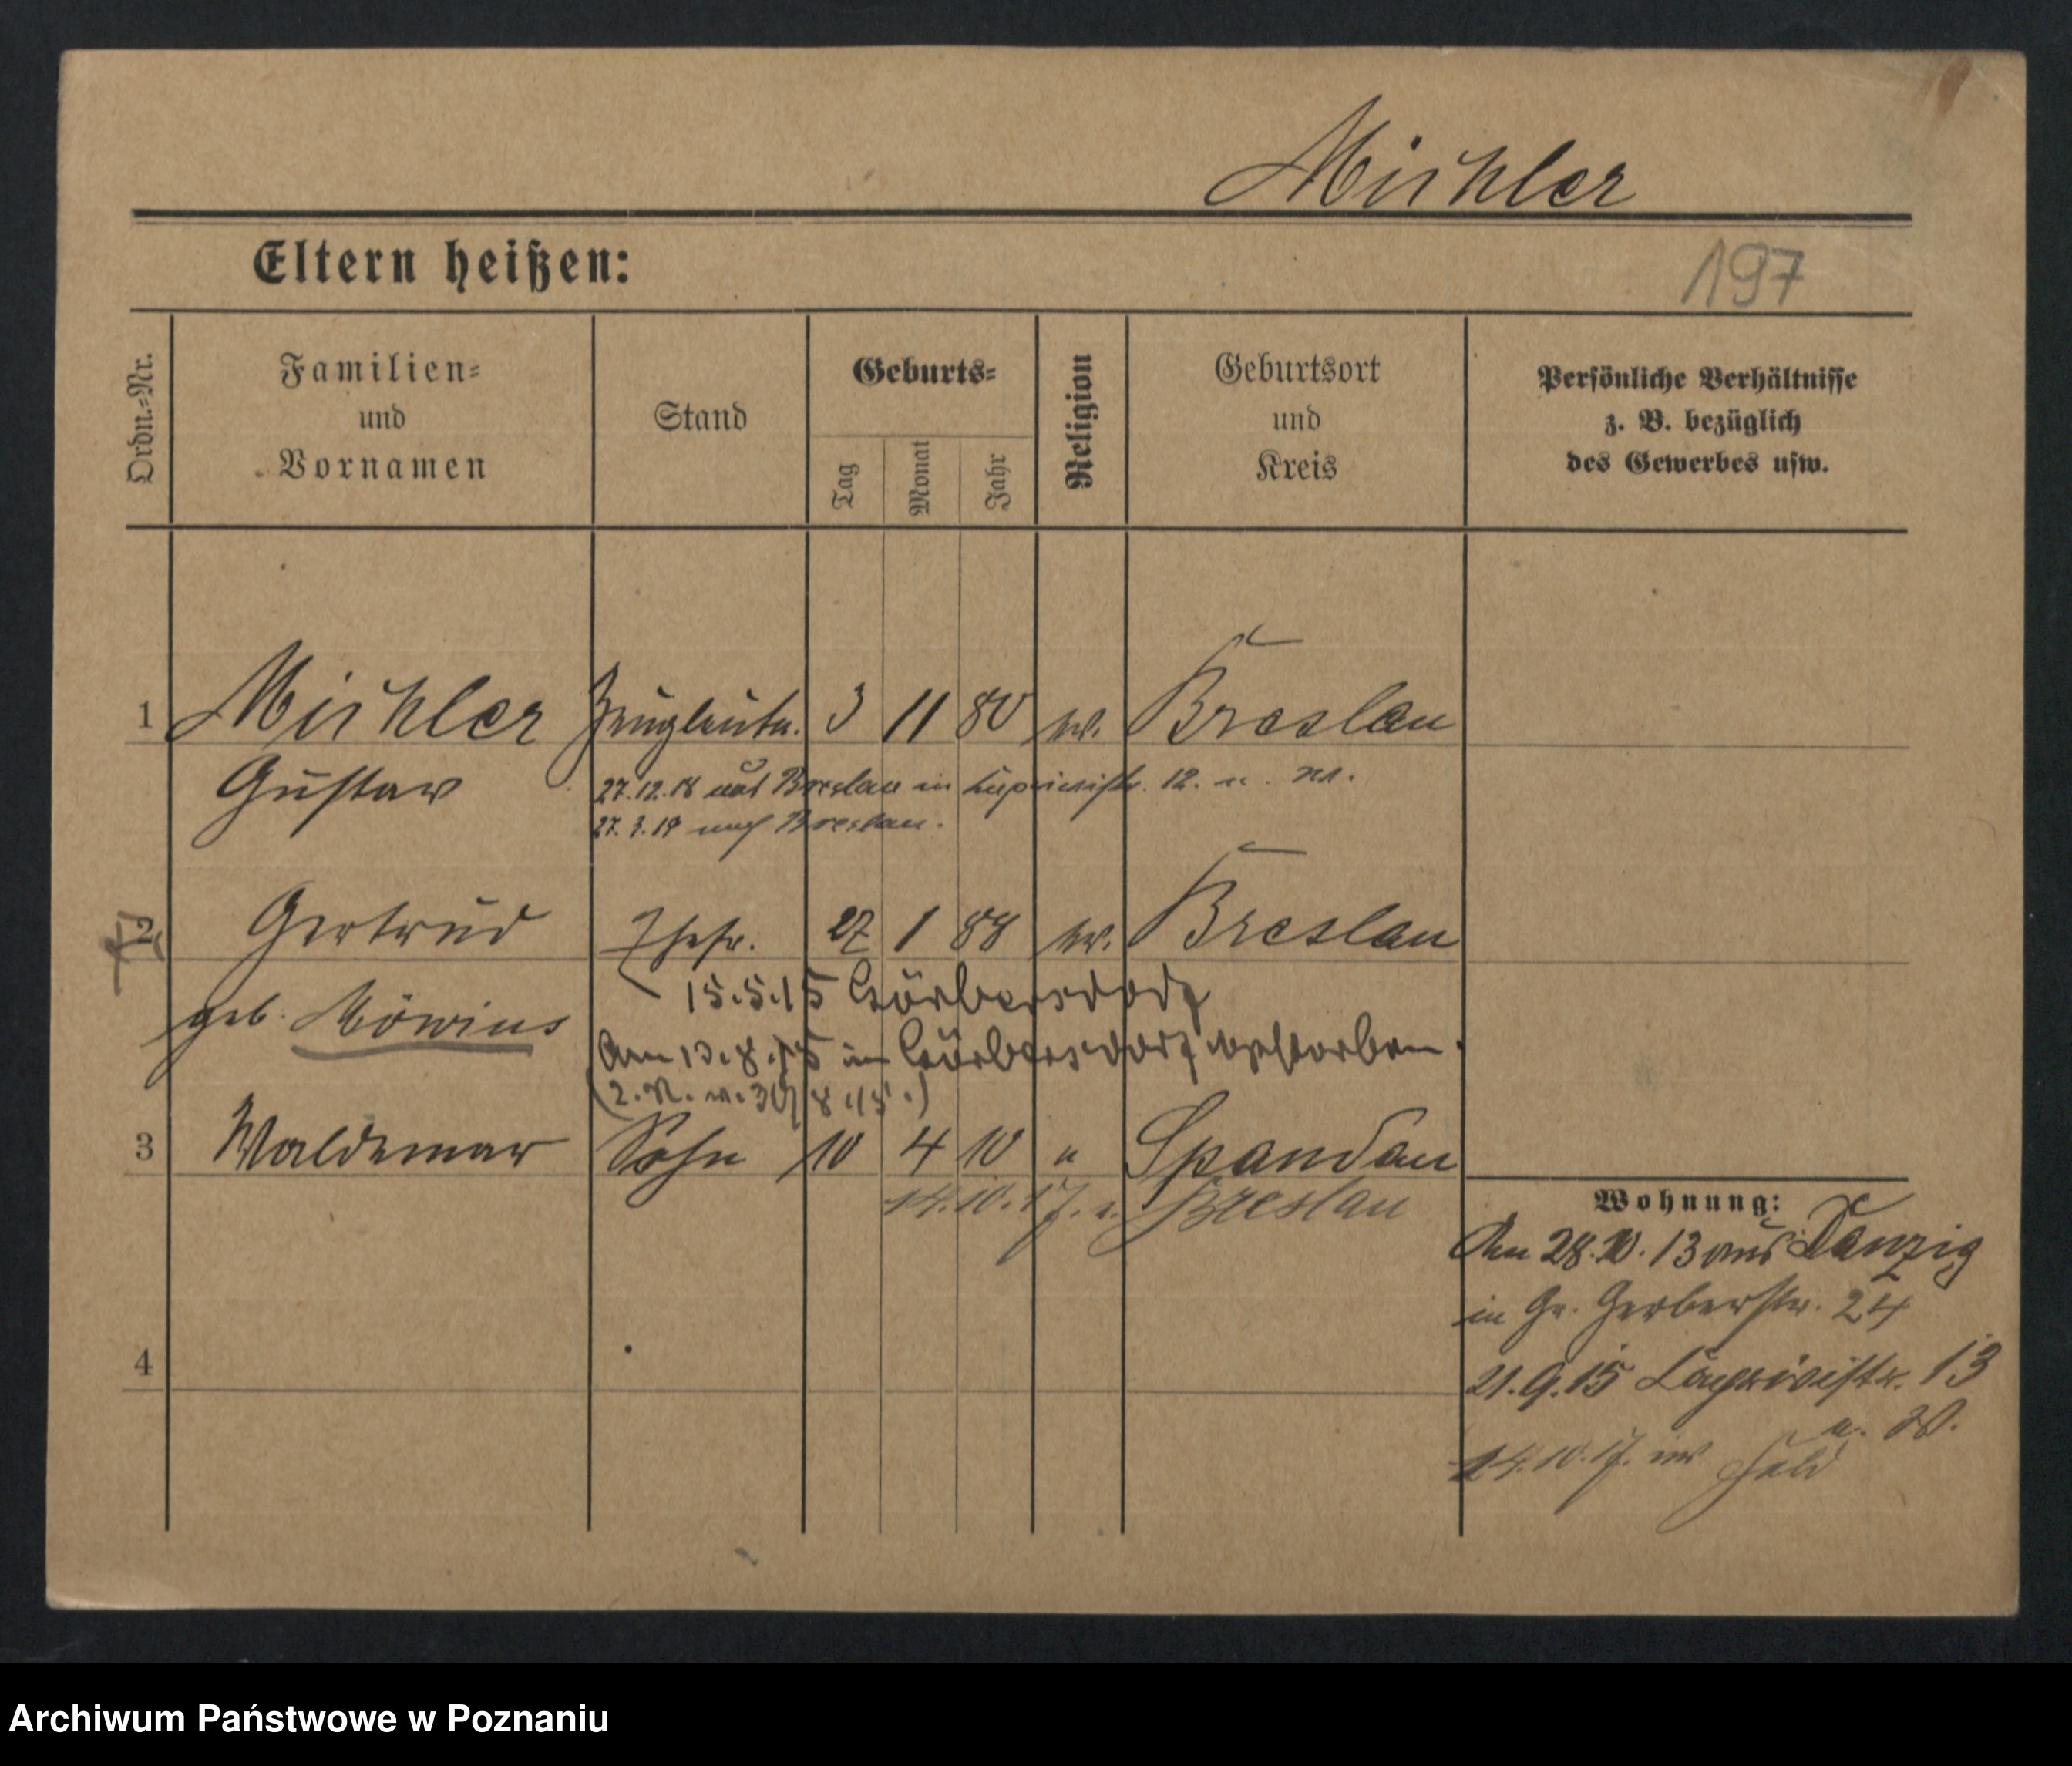 Mühler
Eltern heißen:
197
Ordn.=Nr.
Familien=
und
Vornamen
Stand
Geburts=
Tag
Monat
Jahr
Religion
Geburtsort
und
Kreis
Persönliche Verhältnisse
z. B. bezüglich
des Gewerbes usw.
1 Mühler Zeugleutn. 3 11 80 ev. Breslau
Gustav 27.12.18 aus Breslau in 12. u.
27.3.19 nach Breslau.
2 Gertrud Ehefr. 27 1 88 ev. Breslau
15.5.15 Görbersdorf
geb. Möwius
Am 13.8.15 in Görbersdorf verstorben.
3 Waldemar Sohn 10 4 10 " Spandau
14.10.17. n. Breslau
Wohnung:
Am 28.10.13 aus Danzig
in Gr. Gerberstr. 24
21.9.15 13
14.10.17. ins Feld
4
Archiwum Państwowe w Poznaniu